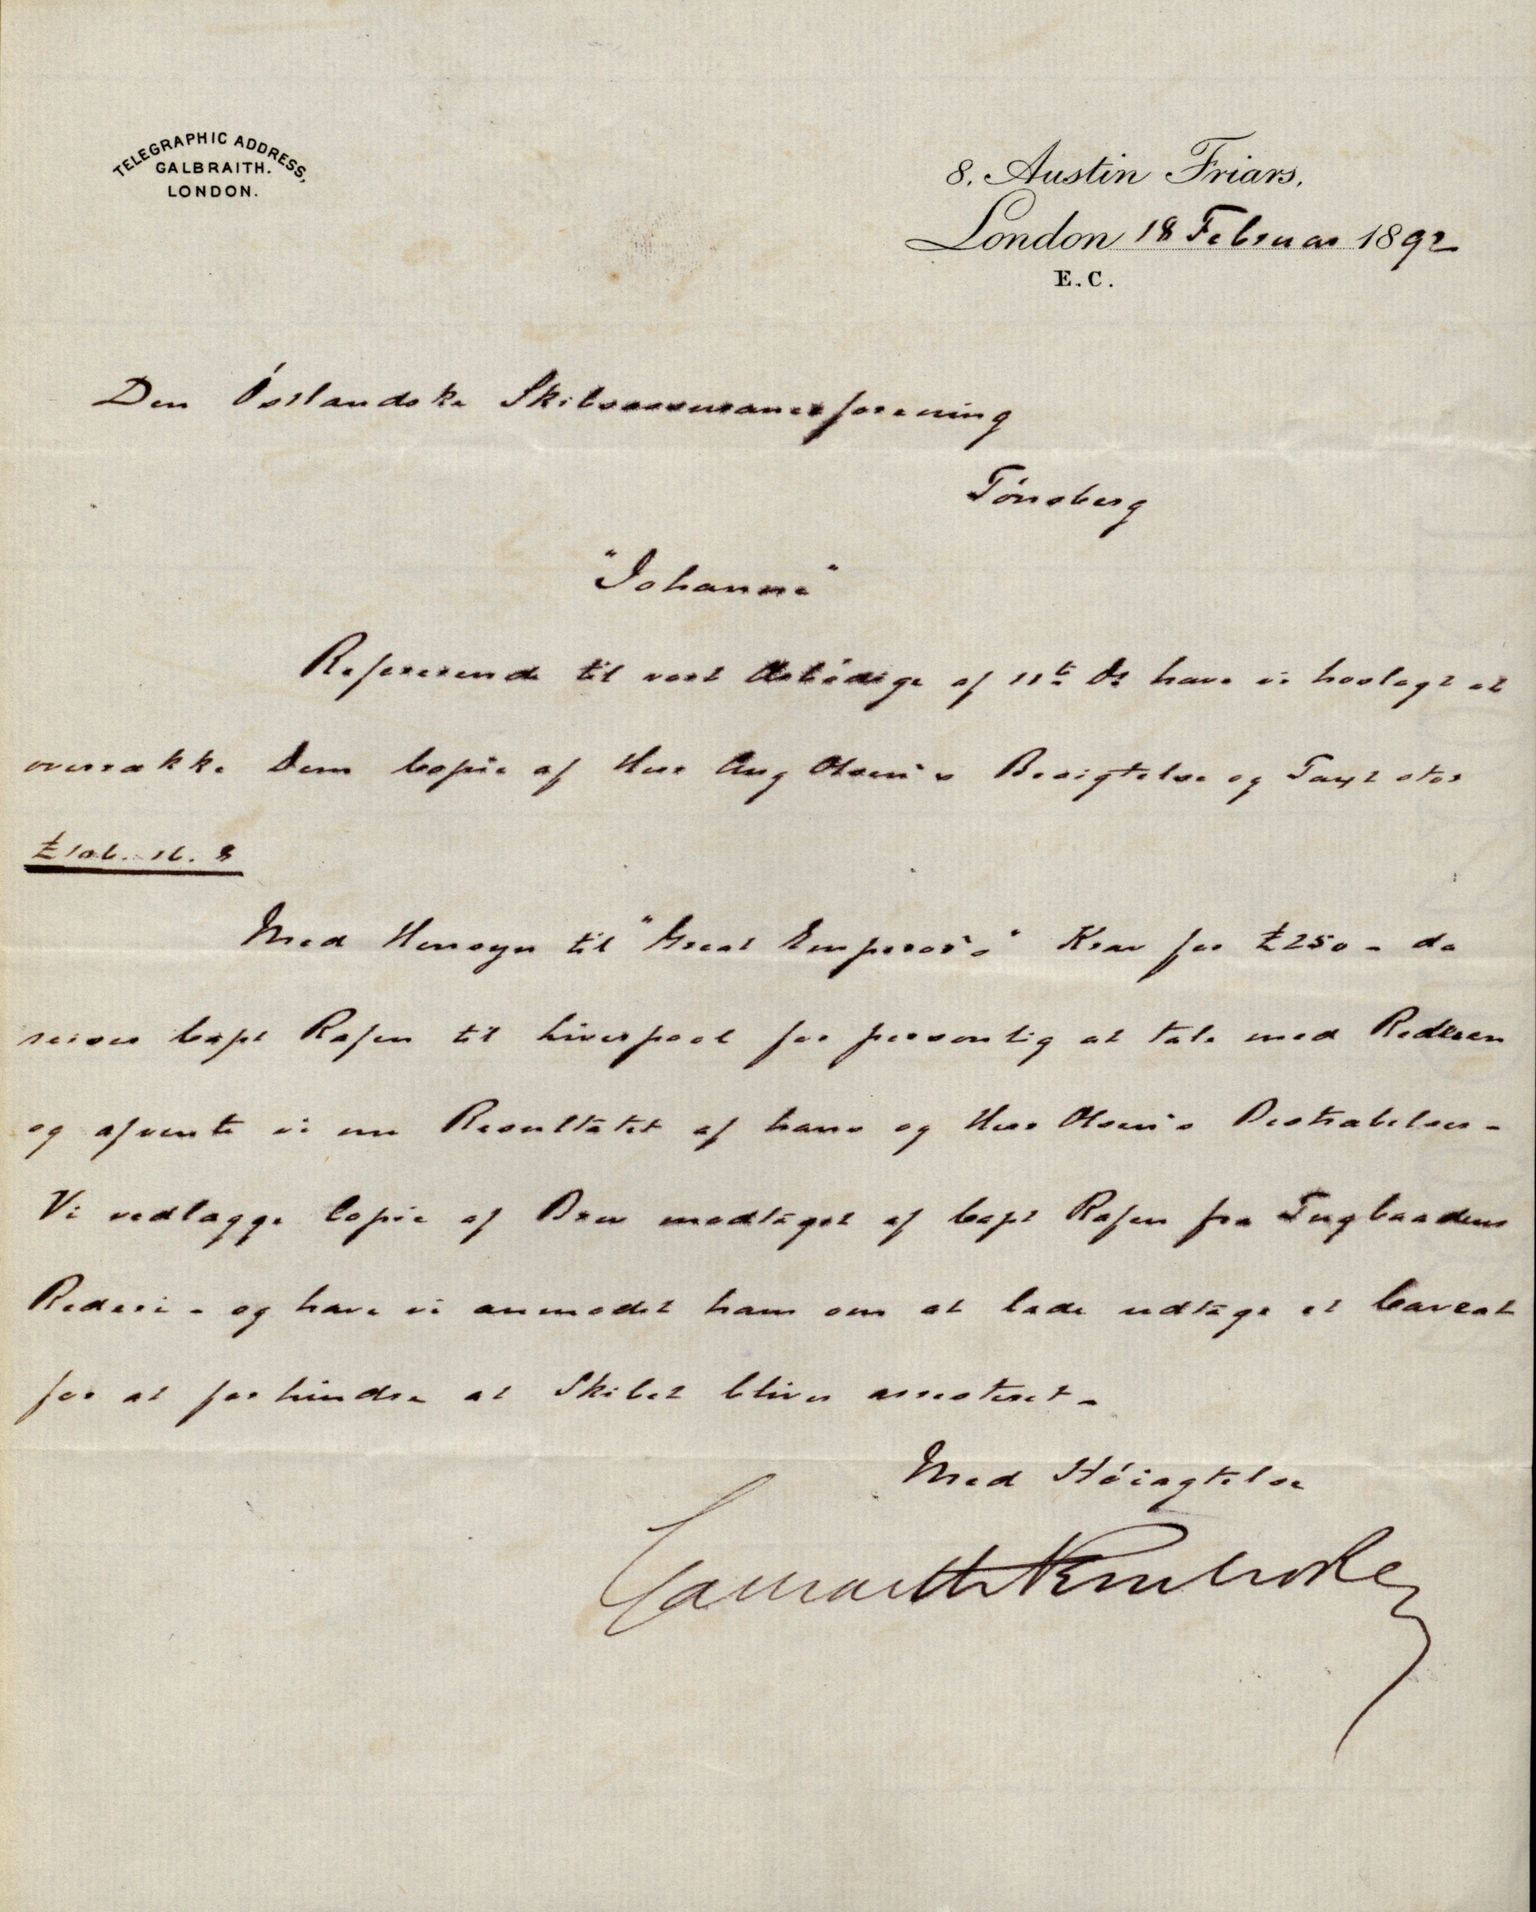 TELEGRAPHIC ADDRESS,
GALBRAITH.
LONDON.
8, Austin Friars,
London 18 Februar 1892
E.C.
Den Østlandske Skibsassuranceforening
Tønsberg
"Johanne"
Refererende til vort Ærbødige af 11te ds have vi hoslagt at
overrække Dem Copie af Herr Aug Olsen's Besigtelse og Taxt stor
Med Hensyn til "Great Emperor's" Krav for £250 - da
reiser Capt Rafen til Liverpool for personlig at tale med Rederen
og afvente vi nu Resultatet af hans og Herr Olsen's Bestræbelser -
Vi vedlægge Copie af Brev modtaget af Capt Rafen fra Tugbaadens
Rederi - og have vi anmodet ham om at lade udtage et Caveat
for at forhindre at Skibet bliver arresteret -
Med Høiagtelse
Galbraith Pembroke